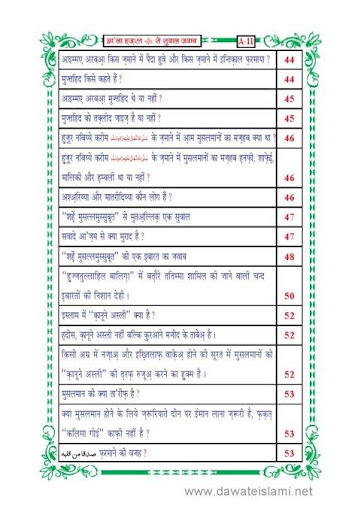 आ'ला हज़रत से सुवाल जवाब
A-11
आइम्मए अरबआ़ किस ज़माने में पैदा हुवे और किस ज़माने में इन्तिक़ाल फ़रमाया ? 44
मुज्तहिद किसे कहते हैं ? 44
आइम्मए अरबआ़ मुज्तहिद थे या नहीं ? 45
मुज्तहिद को तक़्लीद जाइज़ है या नहीं ? 45
हुज़ूर नबिय्ये करीम صَلَّى اللهُ تَعَالٰى عَلَيْهِ وَاٰلِهٖ وَسَلَّم के ज़माने में आ़म मुसलमानों का मज़्हब क्या था ? 46
हुज़ूर नबिय्ये करीम صَلَّى اللهُ تَعَالٰى عَلَيْهِ وَاٰلِهٖ وَسَلَّم के ज़माने में मुसलमानों का मज़्हब हनफ़ी, शाफ़ेई,
मालिकी और हम्बली था या नहीं ? 46
अश्अ़रिय्या और मातरीदिय्या कौन लोग हैं ? 46
“शर्हे मुसल्लमुस्सुबूत” से मुतअ़ल्लिक़ एक सुवाल 47
सवादे आ'ज़म से क्या मुराद है ? 47
“शर्हे मुसल्लमुस्सुबूत” की एक इबारत का जवाब 48
“हुज्जतुल्लाहिल बालिग़ा” में बतौ़रे ततिम्मा शामिल की जाने वाली चन्द
इबारतों की निशान देही । 50
इस्लाम में “क़ानूने अस्ली” क्या है ? 52
हदीस, क़ानूने अस्ली नहीं बल्कि कु़रआने मजीद के ताबेअ़ है । 52
किसी अम्र में नजा़अ़ और इख़्तिलाफ़ वाके़अ़ होने की सूरत में मुसलमानों को
“क़ानूने अस्ली” की त़रफ़ रुजूअ़ करने का हुक्म है । 52
मुसलमान की क्या ता'रीफ़ है ? 53
क्या मुसलमान होने के लिये ज़रूरियाते दीन पर ईमान लाना ज़रूरी है, फ़क़त़
“कलिमा गोई” काफ़ी नहीं है ? 53
صدقا من قلبه फ़रमाने की वजह ? 53
www.dawateislami.net